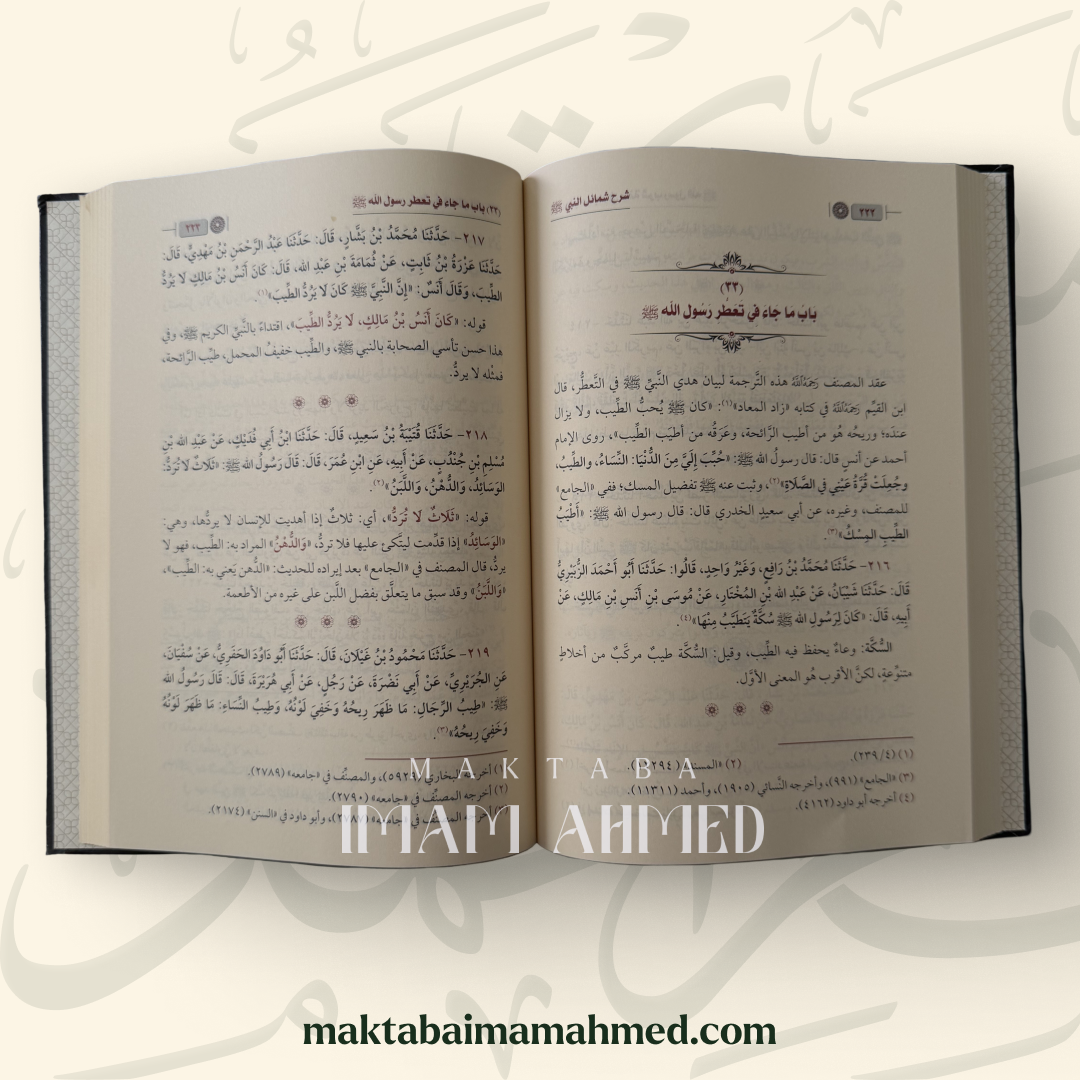 شرح شمائل النبي ﷺ
٢٢٢
(٣٣)
باب ما جاء في تعطر رسول الله ﷺ
عقد المصنف رَحِمَهُ اللَّهُ هذه التَّرجمة لبيان هدي النَّبيِّ ﷺ في التَّعطُّر، قال
ابن القيِّم رَحِمَهُ اللَّهُ في كتابه «زاد المعاد»(١): «كان ﷺ يُحبُّ الطِّيب، ولا يزال
عنده؛ وريحُه هُو من أطيب الرَّائحة، وعَرَقُه من أطيَب الطِّيب»، روى الإمام
أحمد عن أنسٍ قال: قال رسولُ الله ﷺ: «حُبِّبَ إِلَيَّ مِنَ الدُّنْيَا: النِّسَاءُ، والطِّيبُ،
وجُعِلَتْ قُرَّةُ عَيْنِي في الصَّلَاةِ»(٢)، وثبت عنه ﷺ تفضيل المسك؛ ففي «الجامع»
للمصنف، وغيره، عن أبي سعيدٍ الخدري قال: قال رسول الله ﷺ: «أَطْيَبُ
الطِّيبِ المِسْكُ»(٣).
٢١٦- حَدَّثَنَا مُحَمَّدُ بْنُ رَافِعٍ، وَغَيْرُ وَاحِدٍ، قَالُوا: حَدَّثَنَا أَبُو أَحْمَدَ الزُّبَيْرِيُّ
قَالَ: حَدَّثَنَا شَيْبَانُ، عَنْ عَبْدِ الله بْنِ المُخْتَارِ، عَنْ مُوسَى بْنِ أَنَسِ بْنِ مَالِكٍ، عَنْ
أَبِيهِ، قَالَ: «كَانَ لِرَسُولِ الله ﷺ سُكَّةٌ يَتَطَيَّبُ مِنْهَا»(٤).
السُّكَّة: وعاءٌ يحفظ فيه الطِّيب، وقيل: السُّكَّة طيبٌ مركَّبٌ من أخلاطٍ
متنوِّعةٍ، لكنَّ الأقرب هُو المعنى الأوَّل.
(١) (٤/ ٢٣٩).
(٢) «المسند»
(٣) «الجامع» (٩٩١)، وأخرجه النَّسائي (١٩٠٥)، وأحمد (١١٣١١).
(٤) أخرجه أبو داود (٤١٦٢).
(٣٣) باب ما جاء في تعطر رسول الله ﷺ
٢٢٣
٢١٧- حَدَّثَنَا مُحَمَّدُ بْنُ بَشَّارٍ، قَالَ: حَدَّثَنَا عَبْدُ الرَّحْمَنِ بْنُ مَهْدِيٍّ، قَالَ:
حَدَّثَنَا عَزْرَةُ بْنُ ثَابِتٍ، عَنْ ثُمَامَةَ بْنِ عَبْدِ الله، قَالَ: كَانَ أَنَسُ بْنُ مَالِكٍ لا يَرُدُّ
الطِّيبَ، وَقَالَ أَنَسٌ: «إِنَّ النَّبِيَّ ﷺ كَانَ لَا يَرُدُّ الطِّيبَ»(١).
قوله: «كَانَ أَنَسُ بْنُ مَالِكٍ، لا يَرُدُّ الطِّيبَ»، اقتداءً بالنَّبيِّ الكريم ﷺ، وفي
هذا حسن تأسي الصحابة بالنبي ﷺ، والطِّيب خفيفُ المحمل، طيِّب الرَّائحة،
فمثْله لا يردُّ.
٢١٨- حَدَّثَنَا قُتَيْبَةُ بْنُ سَعِيدٍ، قَالَ: حَدَّثَنَا ابْنُ أَبِي فُدَيْكٍ، عَنْ عَبْدِ الله بْنِ
مُسْلِمِ بْنِ جُنْدُبٍ، عَنْ أَبِيهِ، عَنِ ابْنِ عُمَرَ، قَالَ: قَالَ رَسُولُ الله ﷺ: «ثَلَاثٌ لَا تُرَدُّ:
الوَسَائِدُ، وَالدُّهْنُ، وَاللَّبَنُ»(٢).
قوله: «ثَلَاثٌ لَا تُرَدُّ»، أي: ثلاثٌ إذا أهديت للإنسان لا يردُّها، وهي:
«الوَسَائِدُ» إذا قدِّمت ليتَّكئ عليها فلا تردُّ، «وَالدُّهْنُ» المراد به: الطِّيب، فهو لا
يردُّ، قال المصنف في «الجامع» بعد إيراده للحديث: «الدُّهن يَعني به: الطِّيب»،
«وَاللَّبَنُ» وقد سبق ما يتعلَّق بفضل اللَّبن على غيره من الأطعمة.
٢١٩- حَدَّثَنَا مَحْمُودُ بْنُ غَيْلَانَ، قَالَ: حَدَّثَنَا أَبُو دَاوُدَ الحَفَرِيُّ، عَنْ سُفْيَانَ،
عَنِ الجُرَيْرِيِّ، عَنْ أَبِي نَضْرَةَ، عَنْ رَجُلٍ، عَنْ أَبِي هُرَيْرَةَ، قَالَ: قَالَ رَسُولُ الله
ﷺ: «طِيبُ الرِّجَالِ: مَا ظَهَرَ رِيحُهُ وَخَفِيَ لَوْنُهُ، وَطِيبُ النِّسَاءِ: مَا ظَهَرَ لَوْنُهُ
وَخَفِيَ رِيحُهُ»(٣).
(١) أخرجه البخاري (٥٩٢٩)، والمصنِّف في «جامعه» (٢٧٨٩).
(٢) أخرجه المصنِّف في «جامعه» (٢٧٩٠).
أخرجه المصنِّف في «جامعه» (٢٧٨٧)، وأبو داود في «السنن» (٢١٧٤)
MAKTABA
IMAM AHMED
maktabaimamahmed.com